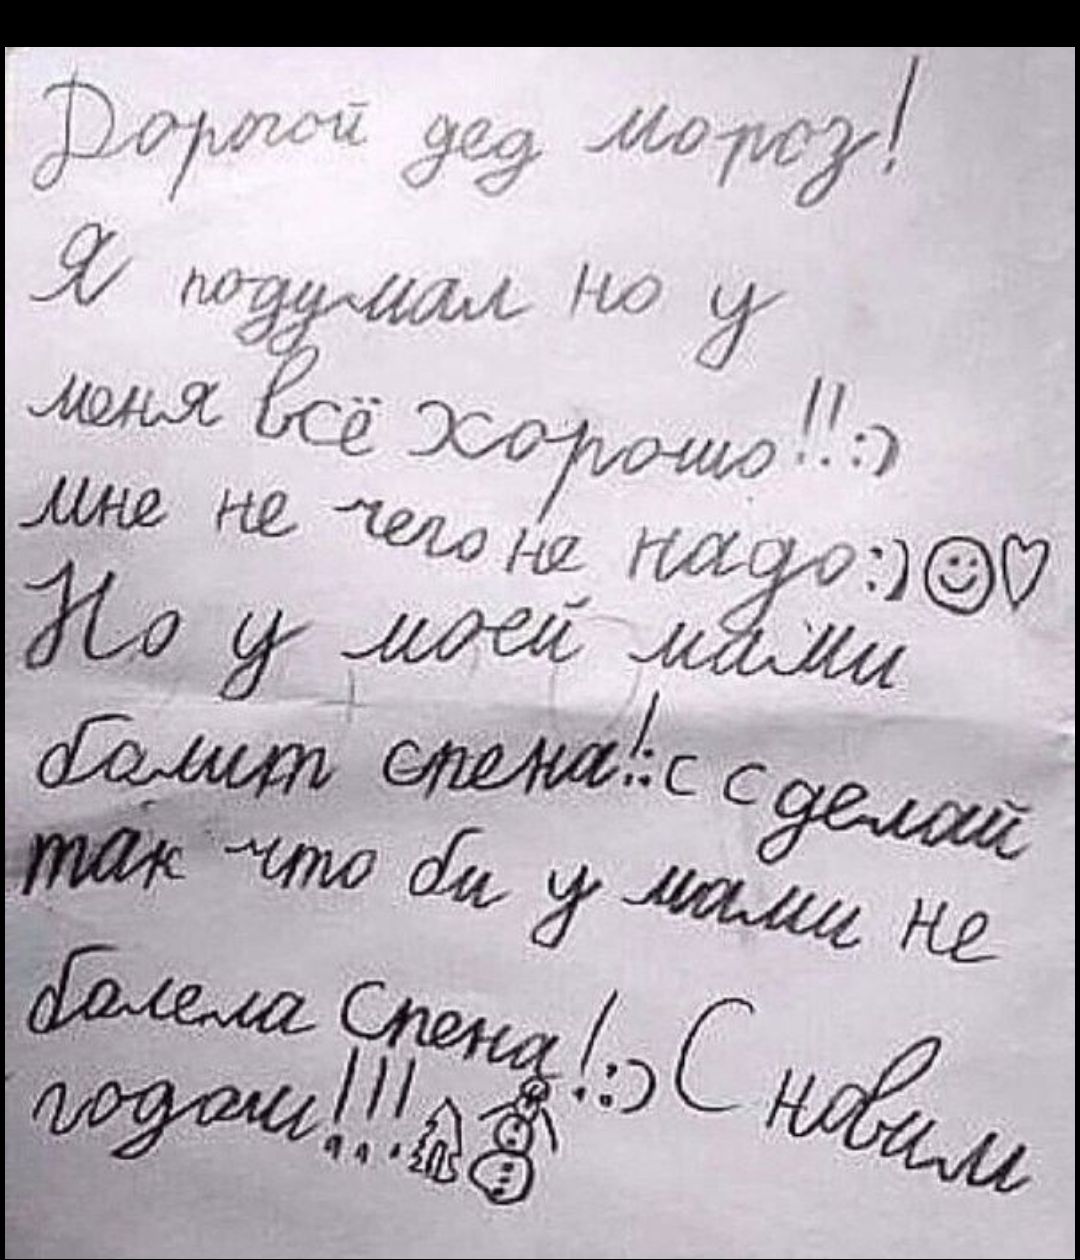 Дорогой дед мороз!
Я подумал но у
меня всё хорошо!!:)
мне не чего не надо:)☺♡
Но у моей мами
балит спена!:с сделай
так что би у мами не
балела Спена!:) С новим
годам!!!